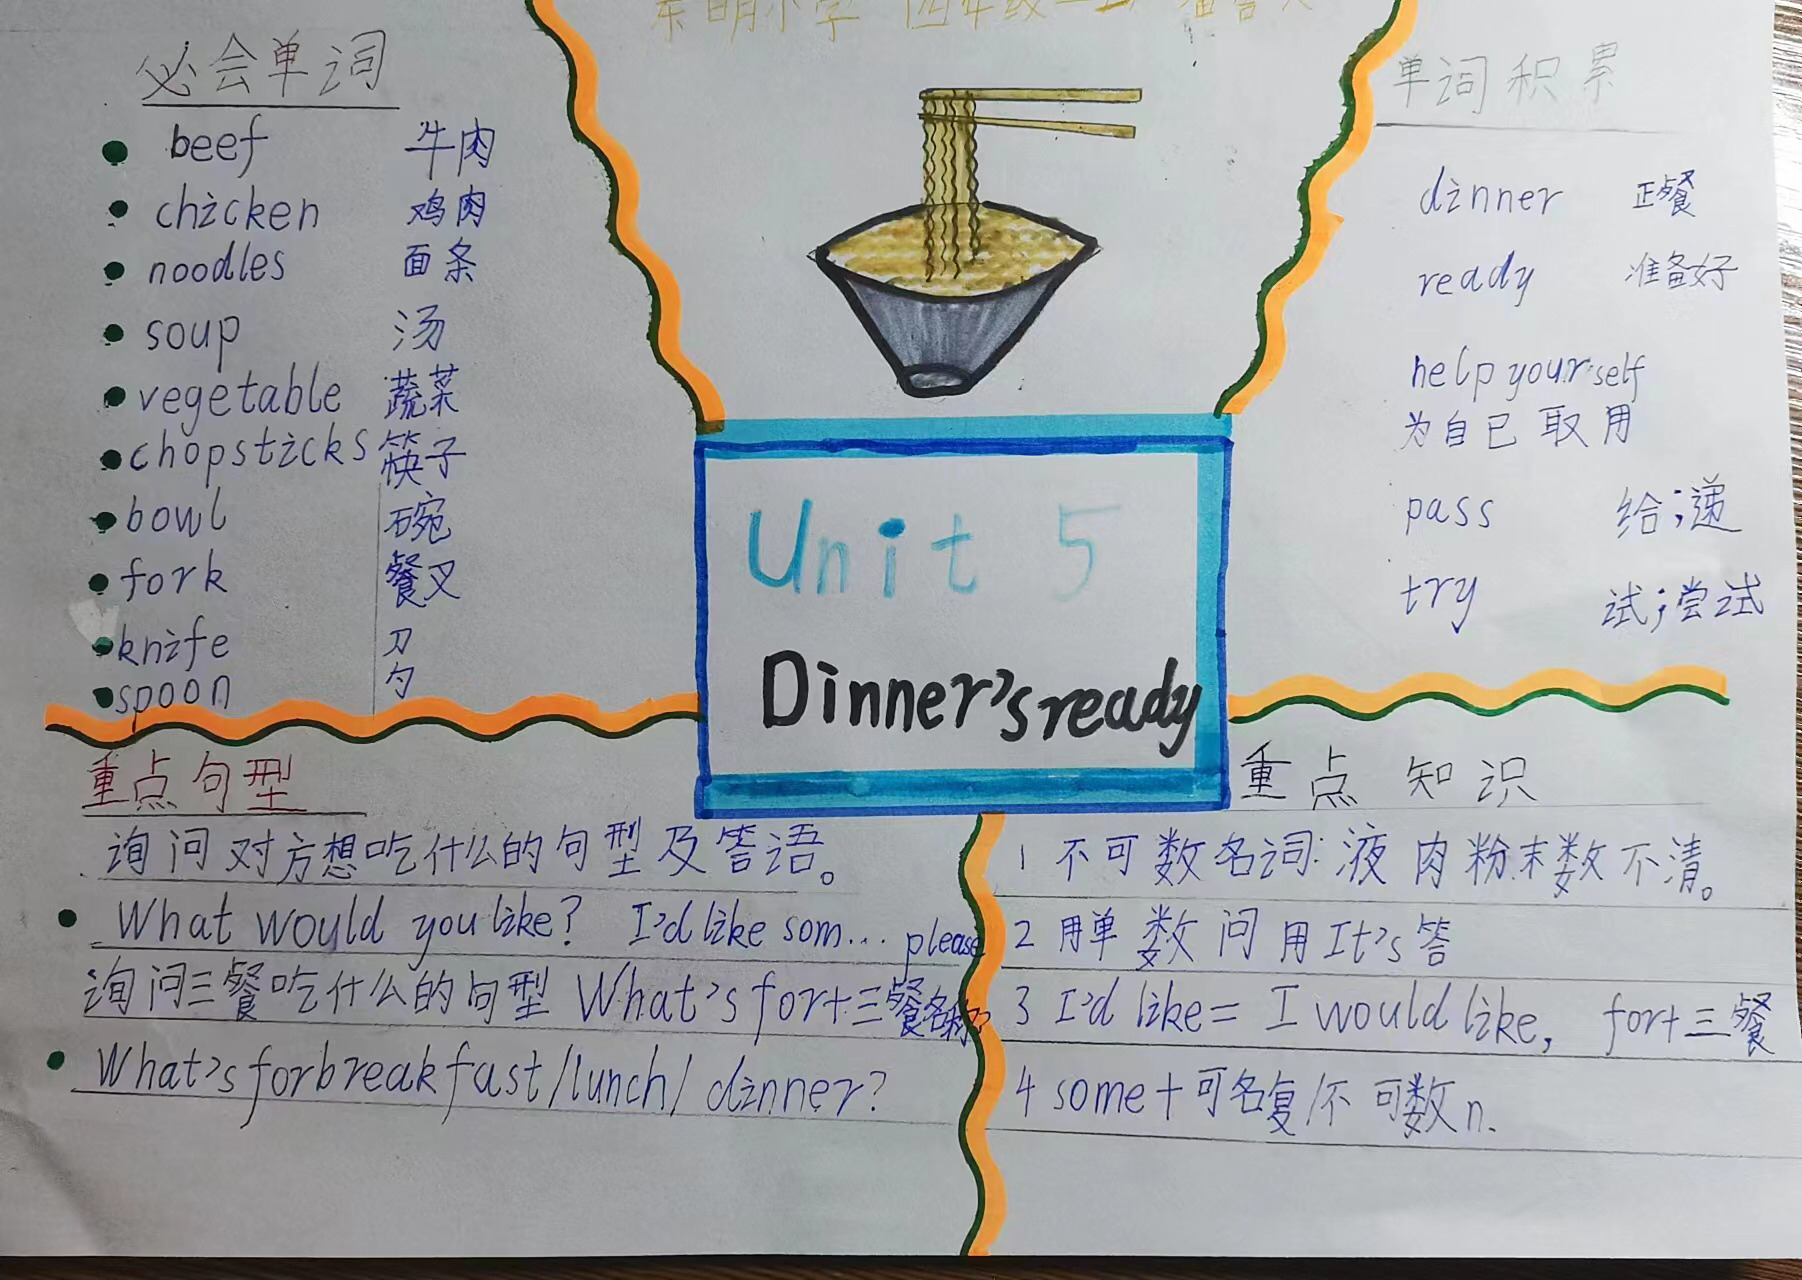 东明小学 四年级
必会单词
beef 牛肉
chicken 鸡肉
noodles 面条
soup 汤
vegetable 蔬菜
chopsticks 筷子
bowl 碗
fork 餐叉
knife 刀
spoon 勺
单词积累
dinner 正餐
ready 准备好
help yourself
为自已取用
pass 给;递
try 试;尝试
Unit 5
Dinner's ready
重点句型
询问对方想吃什么的句型及答语。
What would you like? I'd like som... please
询问三餐吃什么的句型 What's for+三餐名称?
What's for breakfast/lunch/dinner?
重点知识
1 不可数名词:液肉粉末数不清。
2 用单数问用It's答
3 I'd like= I would like, for+三餐
4 some+可名复/不可数n.